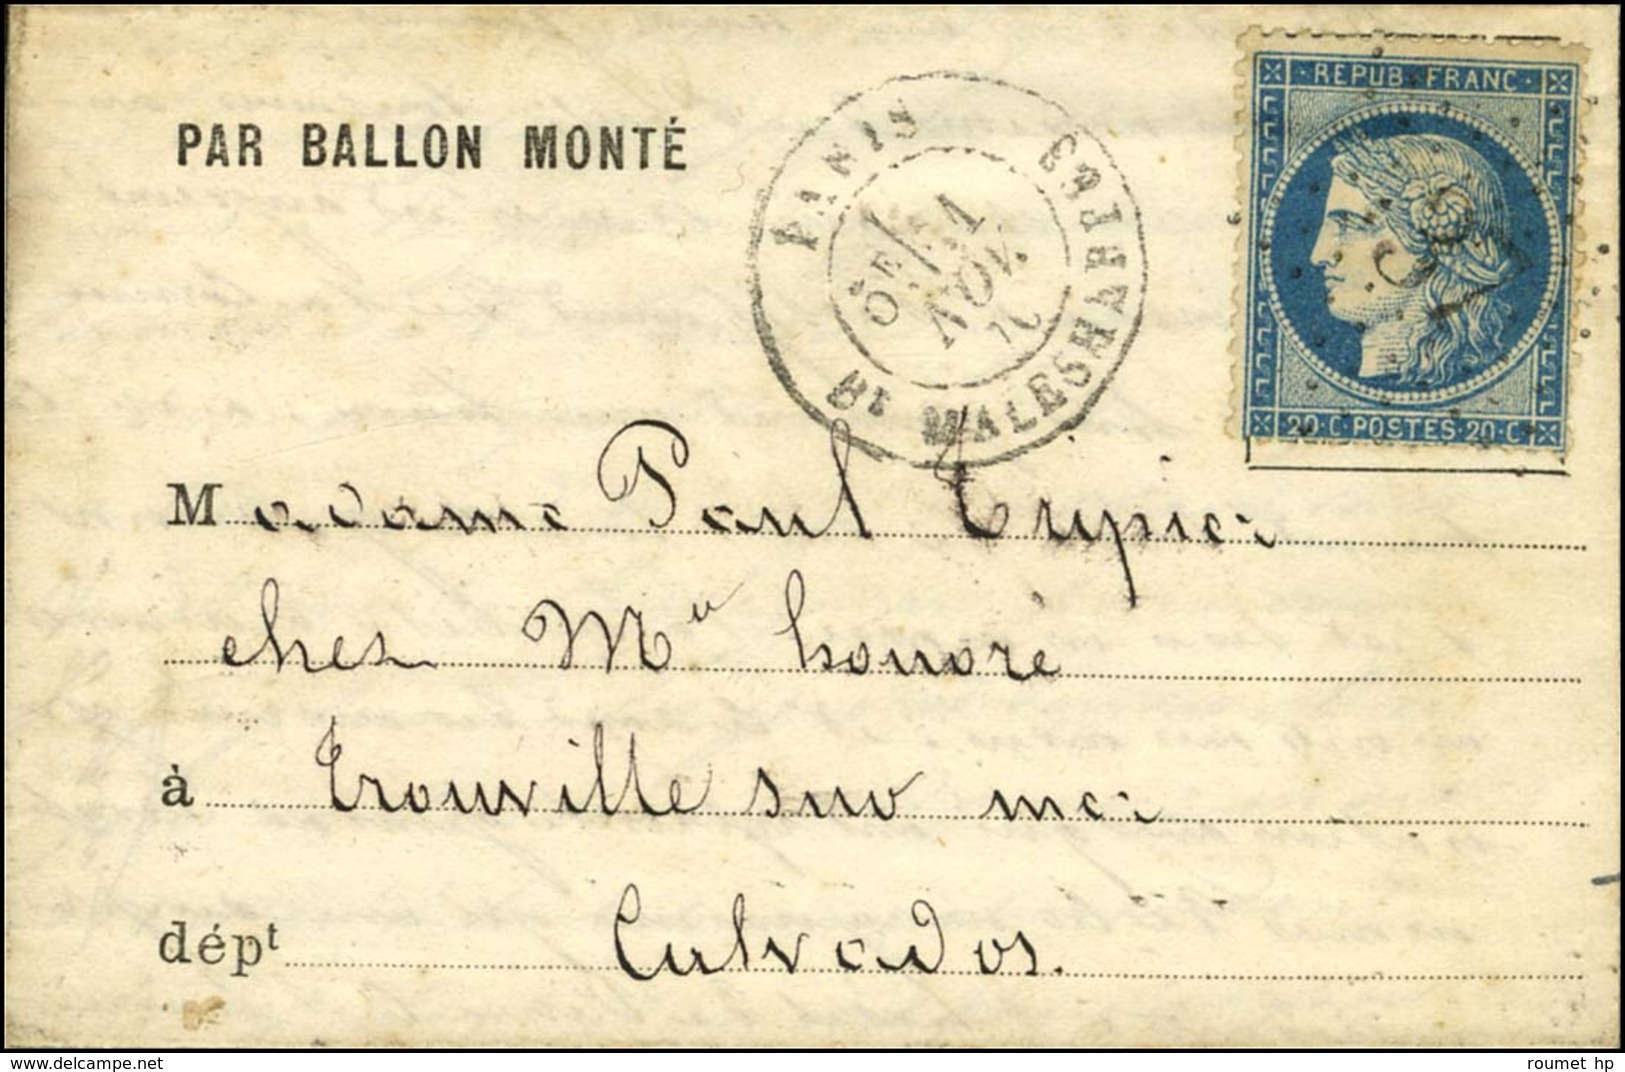 REPUB·FRANC
PAR BALLON MONTÉ
PARIS
6E / 1
NOV.
Bt MALESHERBES
20·C·POSTES·20·C
Madame Paul Tripier
chez Mme honoré
à Trouville sur mer
dépt Calvados.
www.delcampe.net
roumet hp